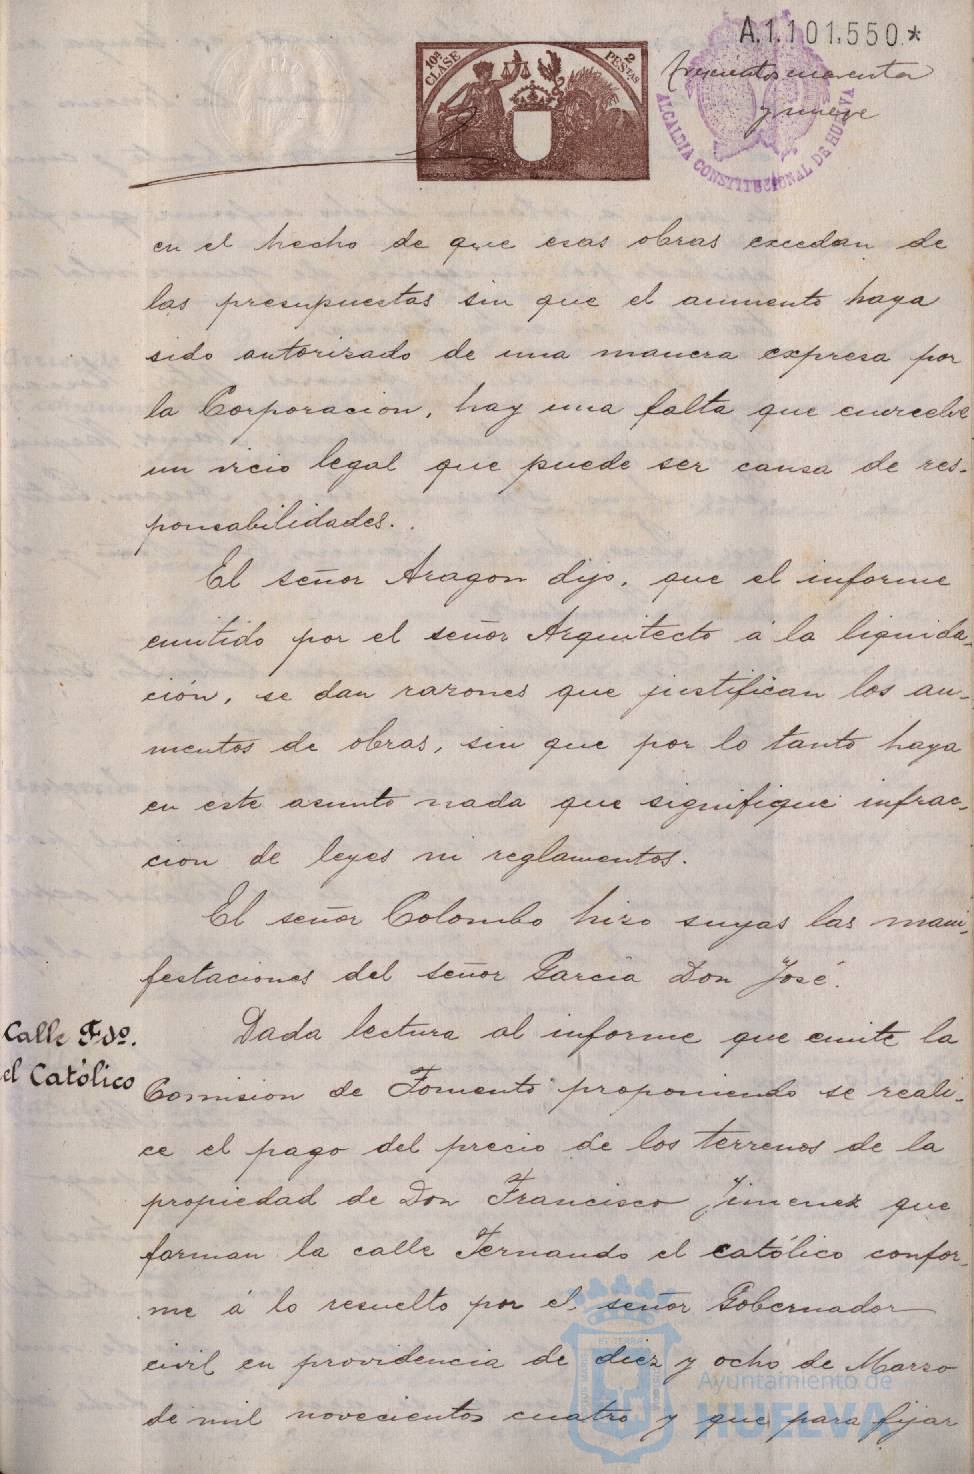 A.1.101.550*
10ª CLASE
2 PESTAS
ALCALDIA CONSTITUCIONAL DE HUELVA
y nueve
en el hecho de que esas obras excedan de
las presupuestas sin que el aumento haya
sido autorizado de una manera expresa por
la Corporacion, hay una falta que envuelve
un vicio legal que puede ser causa de res-
ponsabilidades.
El señor Aragon dijo, que el informe
emitido por el señor Arquitecto á la liquida-
ción, se dan razones que justifican los au-
mentos de obras, sin que por lo tanto haya
en este asunto nada que signifique infrac-
cion de leyes ni reglamentos.
El señor Colombo hizo suyas las mani-
festaciones del señor Garcia Don José.
Calle Fdº.
el Católico
Dada lectura al informe que emite la
Comision de Fomento proponiendo se reali-
ce el pago del precio de los terrenos de la
propiedad de Don Francisco Jimenez que
forman la calle Fernando el católico confor-
me á lo resuelto por el señor Gobernador
civil en providencia de diez y ocho de Marzo
de mil novecientos cuatro y que para fijar
Ayuntamiento de
HUELVA